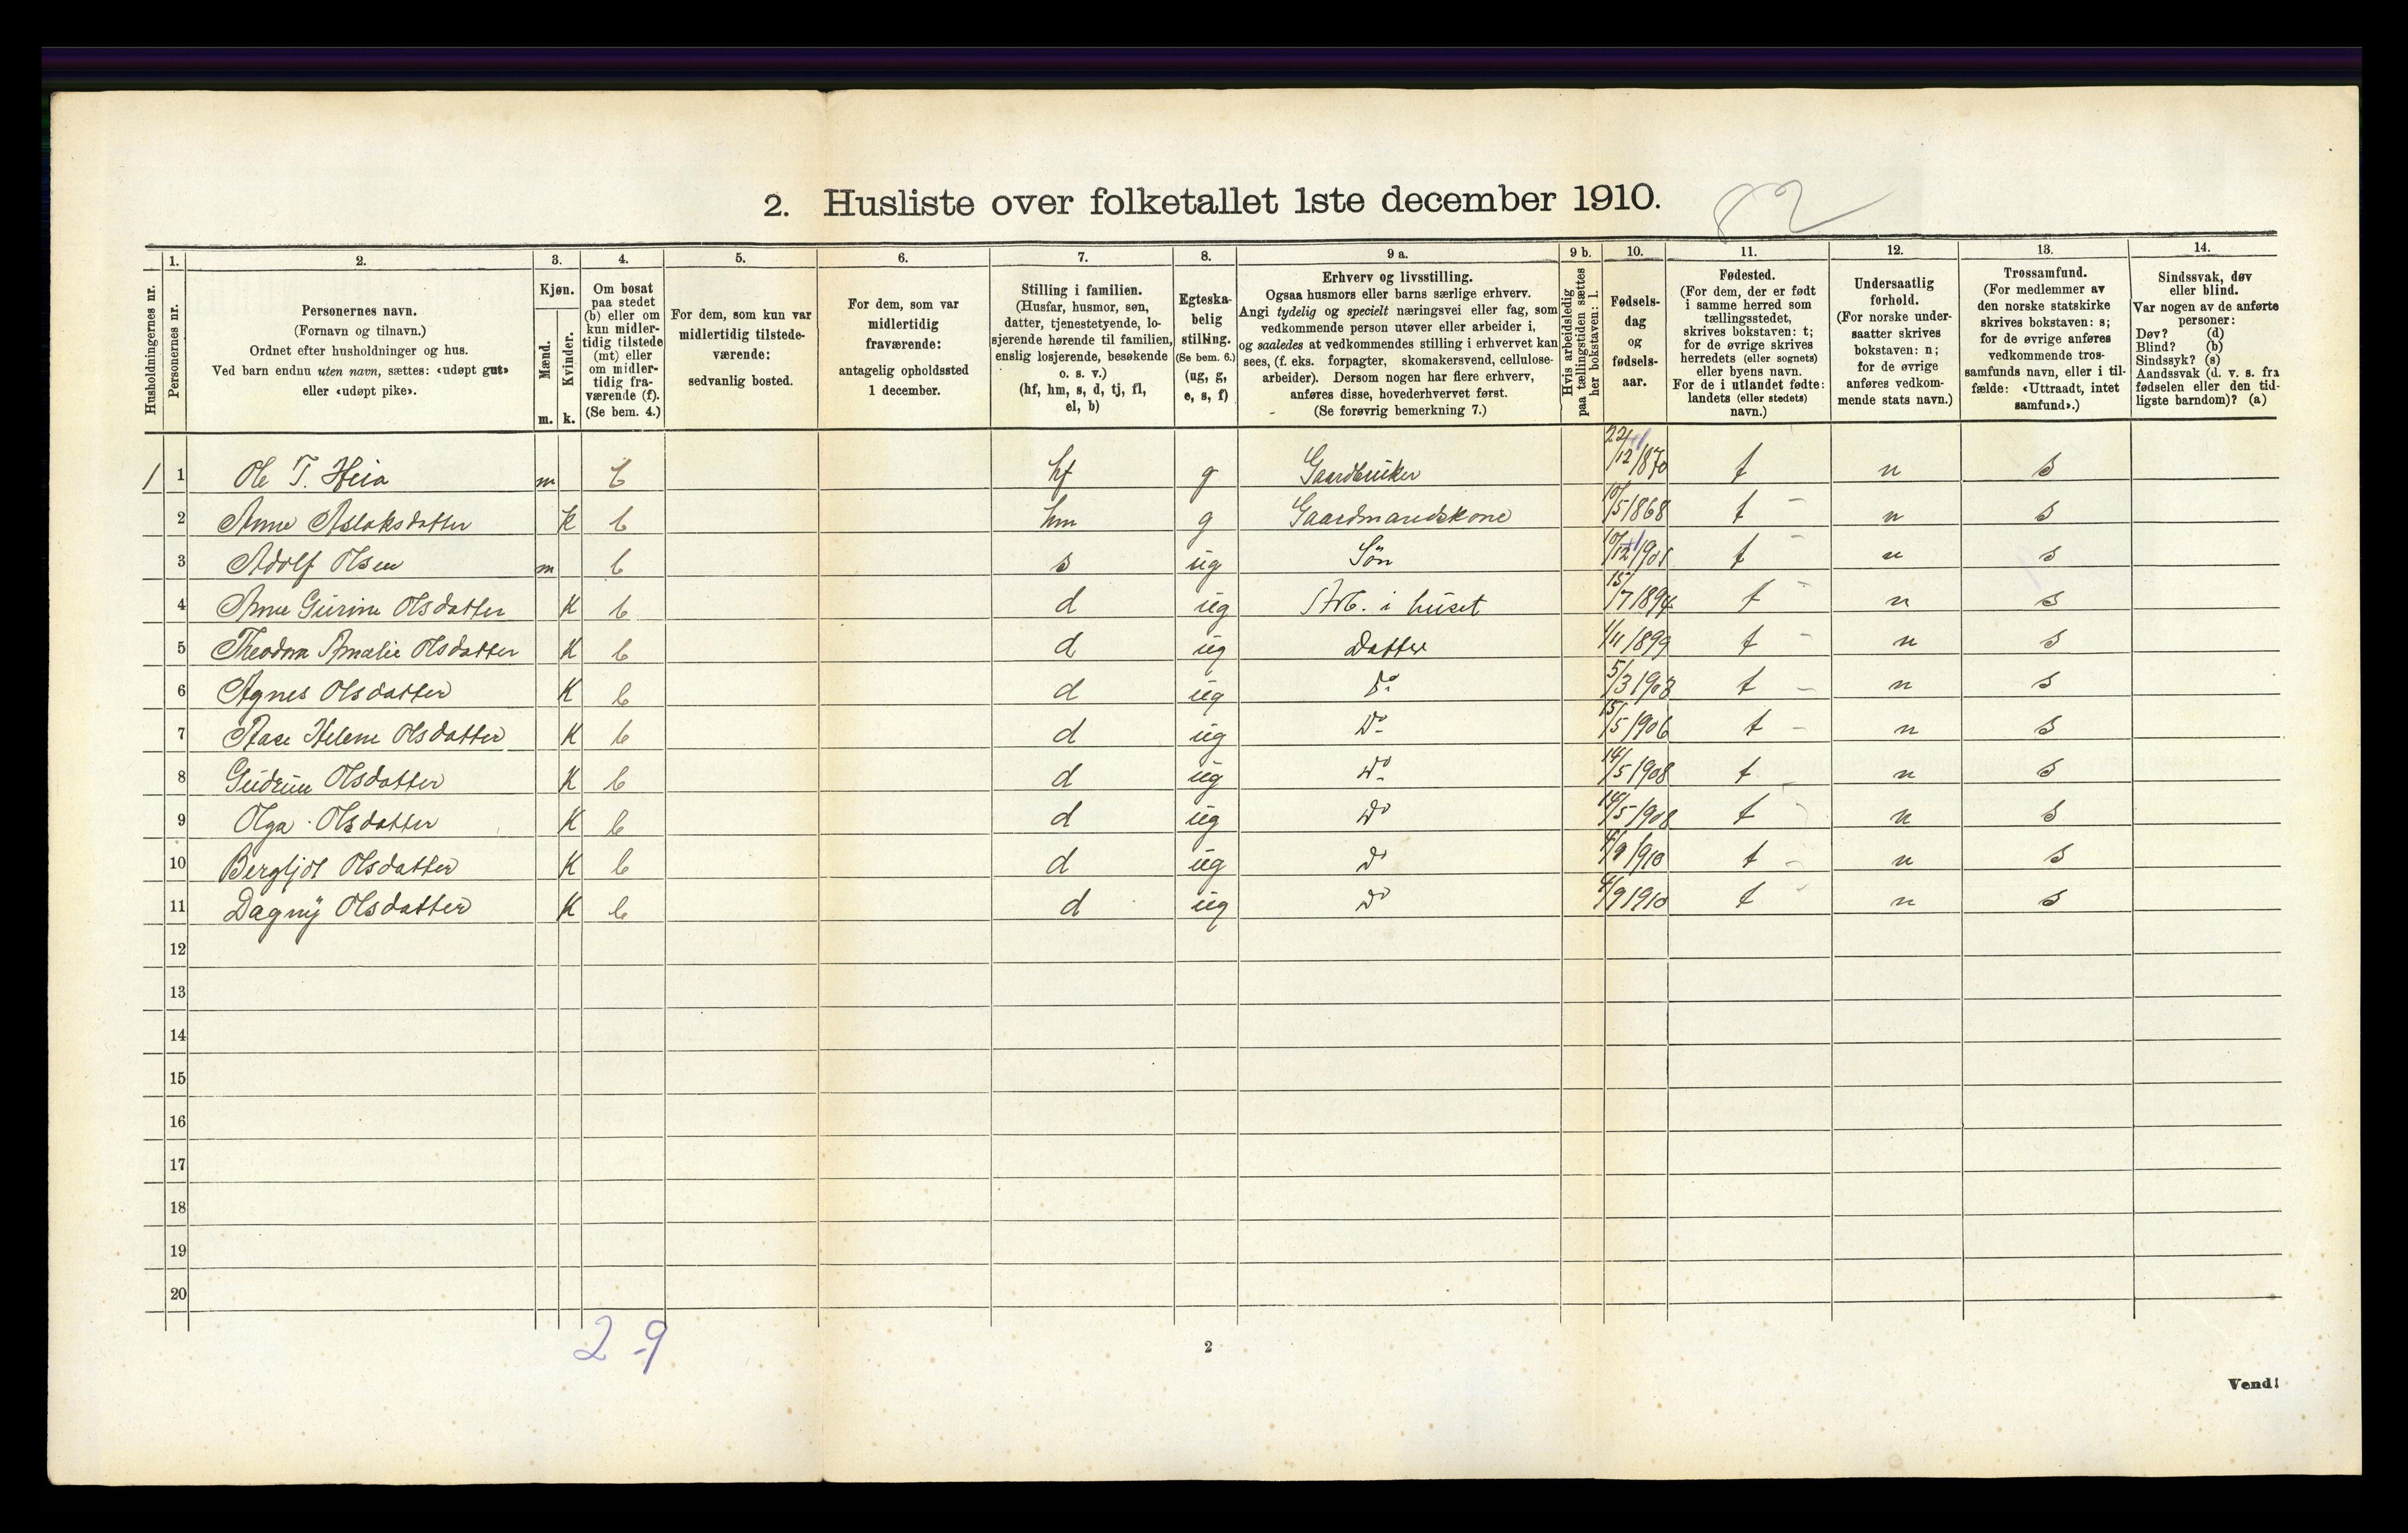 2. Husliste over folketallet 1ste december 1910.
82
Husholdningernes nr.
1.
Personernes nr.
2.
Personernes navn.
(Fornavn og tilnavn.)
Ordnet efter husholdninger og hus.
Ved barn endnu uten navn, sættes: «udøpt gut»
eller «udøpt pike».
3.
Kjøn.
Mænd.
m.
Kvinder.
k.
4.
Om bosat
paa stedet
(b) eller om
kun midler-
tidig tilstede
(mt) eller
om midler-
tidig fra-
værende (f).
(Se bem. 4.)
5.
For dem, som kun var
midlertidig tilstede-
værende:
sedvanlig bosted.
6.
For dem, som var
midlertidig
fraværende:
antagelig opholdssted
1 december.
7.
Stilling i familien.
(Husfar, husmor, søn,
datter, tjenestetyende, lo-
sjerende hørende til familien,
enslig losjerende, besøkende
o. s. v.)
(hf, hm, s, d, tj, fl,
el, b)
8.
Egteska-
belig
stilling.
(Se bem. 6.)
(ug, g,
e, s, f)
9 a.
Erhverv og livsstilling.
Ogsaa husmors eller barns særlige erhverv.
Angi tydelig og specielt næringsvei eller fag, som
vedkommende person utøver eller arbeider i,
og saaledes at vedkommendes stilling i erhvervet kan
sees, (f. eks. forpagter, skomakersvend, cellulose-
arbeider). Dersom nogen har flere erhverv,
anføres disse, hovederhvervet først.
(Se forøvrig bemerkning 7.)
9 b.
Hvis arbeidsledig
paa tællingstiden sættes
her bokstaven: l.
10.
Fødsels-
dag
og
fødsels-
aar.
11.
Fødested.
(For dem, der er født
i samme herred som
tællingsstedet,
skrives bokstaven: t;
for de øvrige skrives
herredets (eller sognets)
eller byens navn.
For de i utlandet fødte:
landets (eller stedets)
navn.)
12.
Undersaatlig
forhold.
(For norske under-
saatter skrives
bokstaven: n;
for de øvrige
anføres vedkom-
mende stats navn.)
13.
Trossamfund.
(For medlemmer av
den norske statskirke
skrives bokstaven: s;
for de øvrige anføres
vedkommende tros-
samfunds navn, eller i til-
fælde: «Uttraadt, intet
samfund».)
14.
Sindssvak, døv
eller blind.
Var nogen av de anførte
personer:
Døv? (d)
Blind? (b)
Sindssyk? (s)
Aandssvak (d. v. s. fra
fødselen eller den tid-
ligste barndom)? (a)
1 1 Ole T. Heia m b hf g Gaardbruker 22/12 1870 t n s
2 Anne Aslaksdatter k b hm g Gaardmandskone 10/5 1868 t n s
3 Adolf Olsen m b s ug Sön 10/12 1901 t n s
4 Anne Gurine Olsdatter K b d ug Arb. i huset 15/7 1894 t n s
5 Theodora Amalie Olsdatter K b d ug Datter 1/11 1899 t n s
6 Agnes Olsdatter K b d ug Do 5/3 1903 t n s
7 Aase Helene Olsdatter K b d ug Do 15/5 1906 t n s
8 Gudrun Olsdatter K b d ug Do 14/5 1908 t n s
9 Olga Olsdatter K b d ug Do 14/5 1908 t n s
10 Bergljot Olsdatter K b d ug Do 4/9 1910 t n s
11 Dagny Olsdatter K b d ug Do 4/9 1910 t n s
12
13
14
15
16
17
18
19
20
2-9
2
Vend!